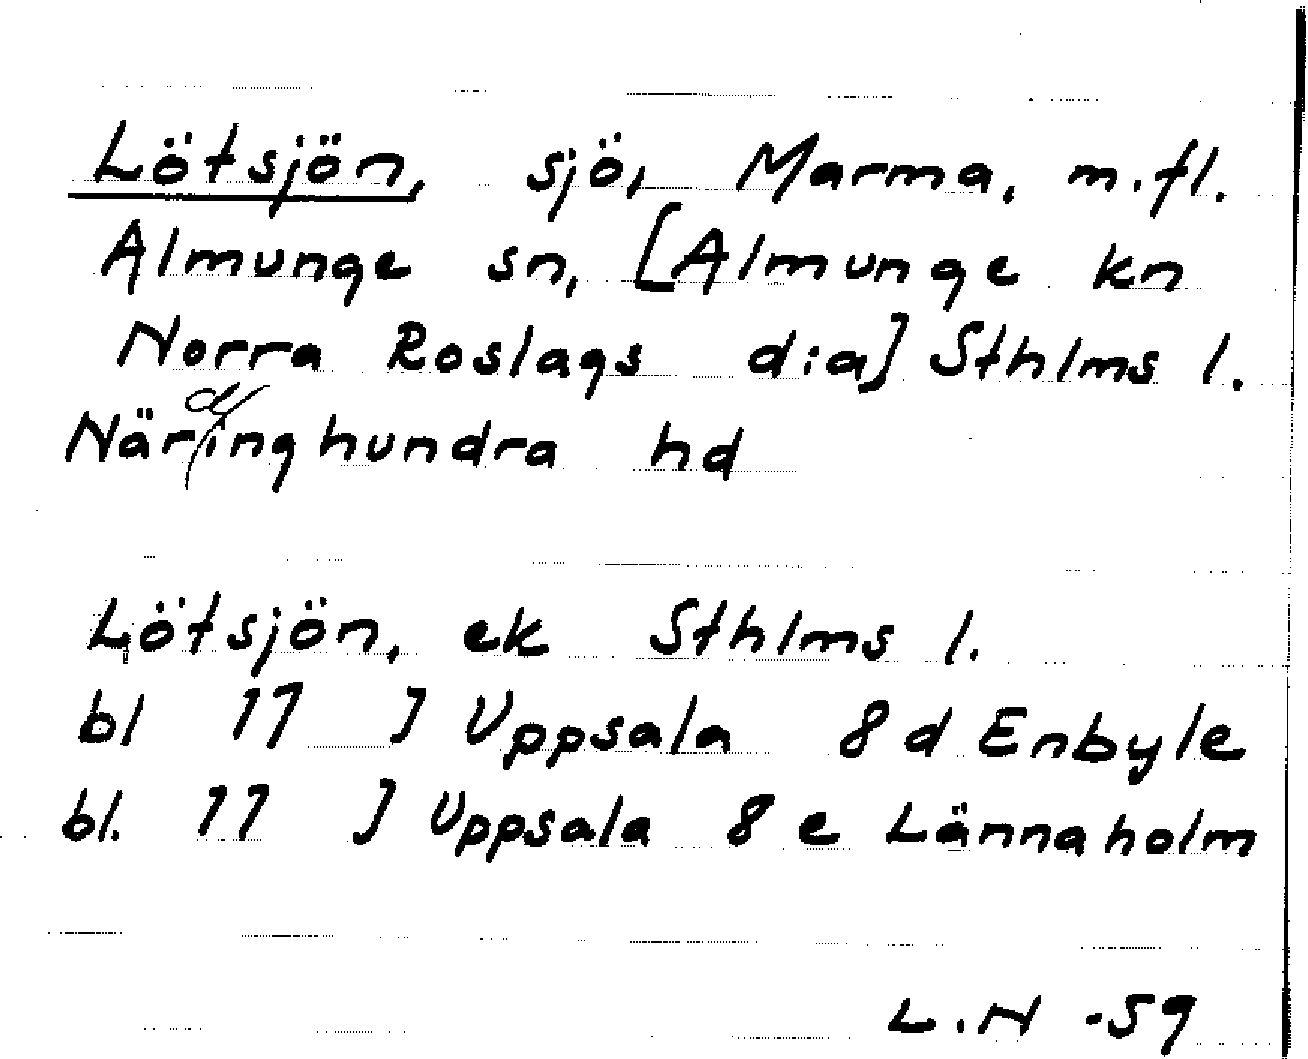 Lötsjön, sjö, Marma, m.fl.
Almunge sn, [Almunge kn
Norra Roslags dia] Sthlms l.
Närdinghundra hd
Lötsjön, ek Sthlms l.
bl 11 J Uppsala 8 d Enbyle
bl. 11 J Uppsala 8 e Lännaholm
L.N -59